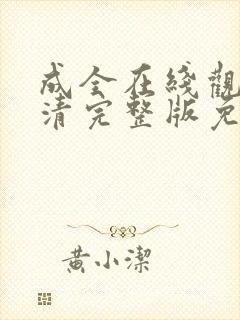 成全在綫觀
清完整版免
黄小潔